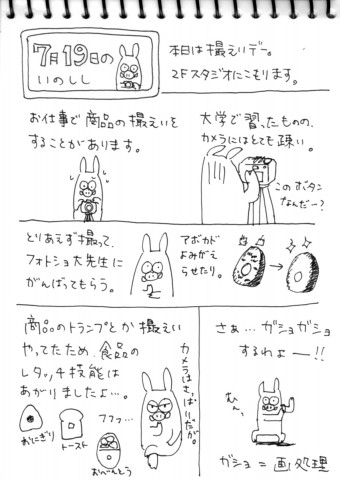 7月19日の
いのしし
本日は撮えいデー。
2Fスタジオにこもります。
お仕事で商品の撮えいを
することがあります。
大学で習ったものの、
カメラにはとても疎い。
このボタン
なんだー?
とりあえず撮って、
フォトショ大先生に
がんばってもらう。
アボカド
よみがえ
らせたり。
商品のトランプとか撮えい
やってたため、食品の
レタッチ技能は
あがりましたよ…。
おにぎり
トースト
フフッ…
おべんとう
カメラはさっぱいだが。
さぁ…ガショガショ
するわよー!!
むん。
ガショ=画処理